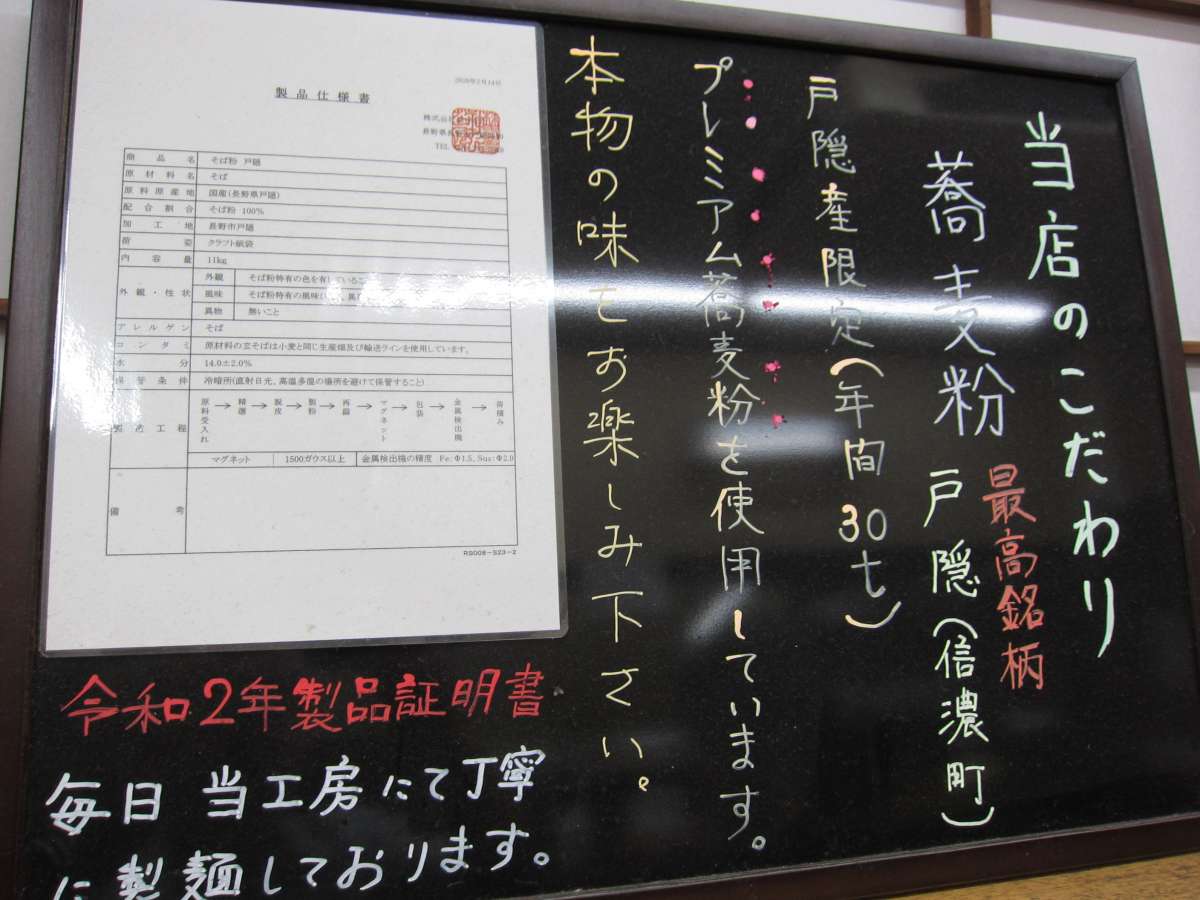 当店のこだわり
蕎麦粉
最高銘柄
戸隠(信濃町)
戸隠産限定(年間30t)
プレミアム蕎麦粉を使用しています。
本物の味をお楽しみ下さい。
2020年2月14日
製品仕様書
株式会社
長野県長
TEL
商品名 そば粉 戸隠
原材料名 そば
原料原産地 国産(長野県戸隠)
配合割合 そば粉 100%
加工地 長野市戸隠
荷姿 クラフト紙袋
内容量 11kg
外観・性状
外観 そば粉特有の色を有しているこ
風味 そば粉特有の風味
異物 無いこと
アレルゲン そば
コンタミ 原材料の玄そばは小麦と同じ生産畑及び輸送ラインを使用しています。
水分 14.0±2.0%
保管条件 冷暗所(直射日光、高温多湿の場所を避けて保管すること)
製造工程
原料受入れ→精選→脱皮→製粉→再篩→マグネット→包装→金属検出機→荷積み
マグネット 1500ガウス以上 金属検出機の精度 Fe:Φ1.5、Sus:Φ2.0
備考
RS008-S23-2
令和2年製品証明書
毎日 当工房にて丁寧
に製麺しております。